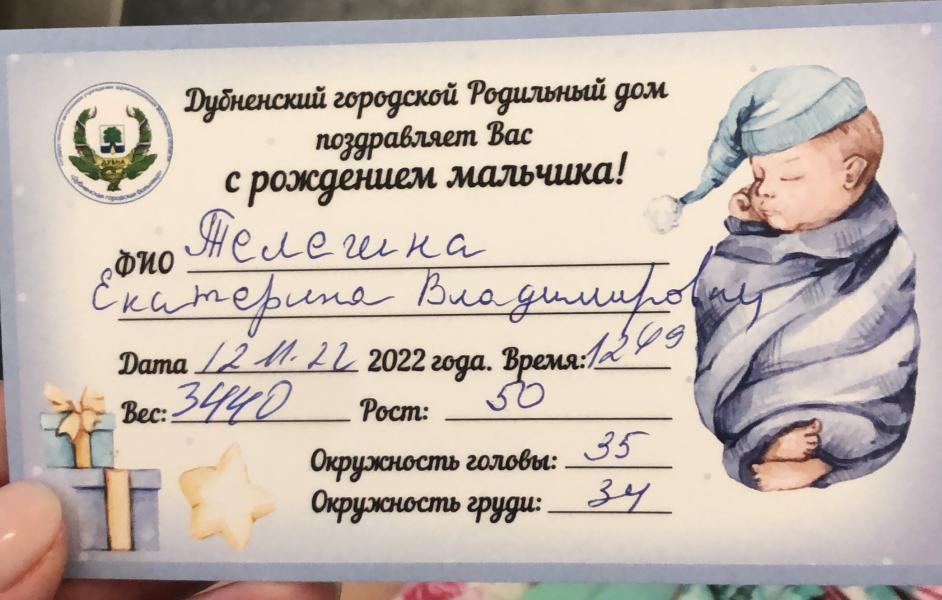 Дубненский городской Родильный дом
поздравляет Вас
с рождением мальчика!
ДУБНА
ФИО Телегина
Екатерина Владимировна
Дата 12.11.22 2022 года. Время: 12 49
Вес: 3440 Рост: 50
Окружность головы: 35
Окружность груди: 34